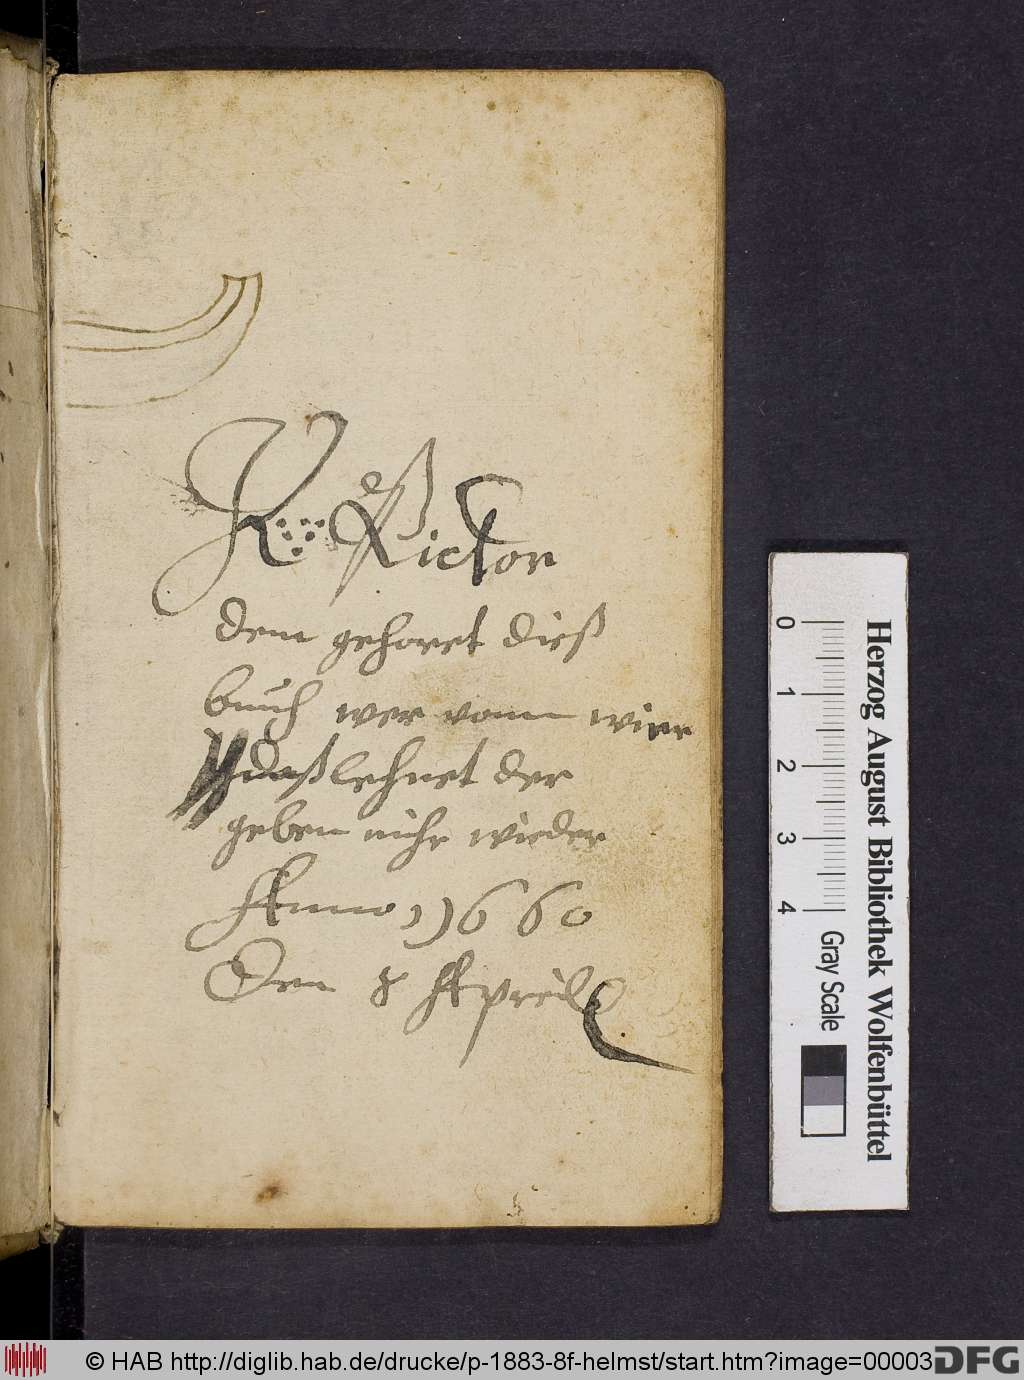 dem gehoret dieß
buuch wer vonn mier
daß lehnet der
geben mihr wieder
Anno 1660
Den 8 Apreil
Herzog August Bibliothek Wolfenbüttel
0 1 2 3 4
Gray Scale
© HAB http://diglib.hab.de/drucke/p-1883-8f-helmst/start.htm?image=00003
DFG